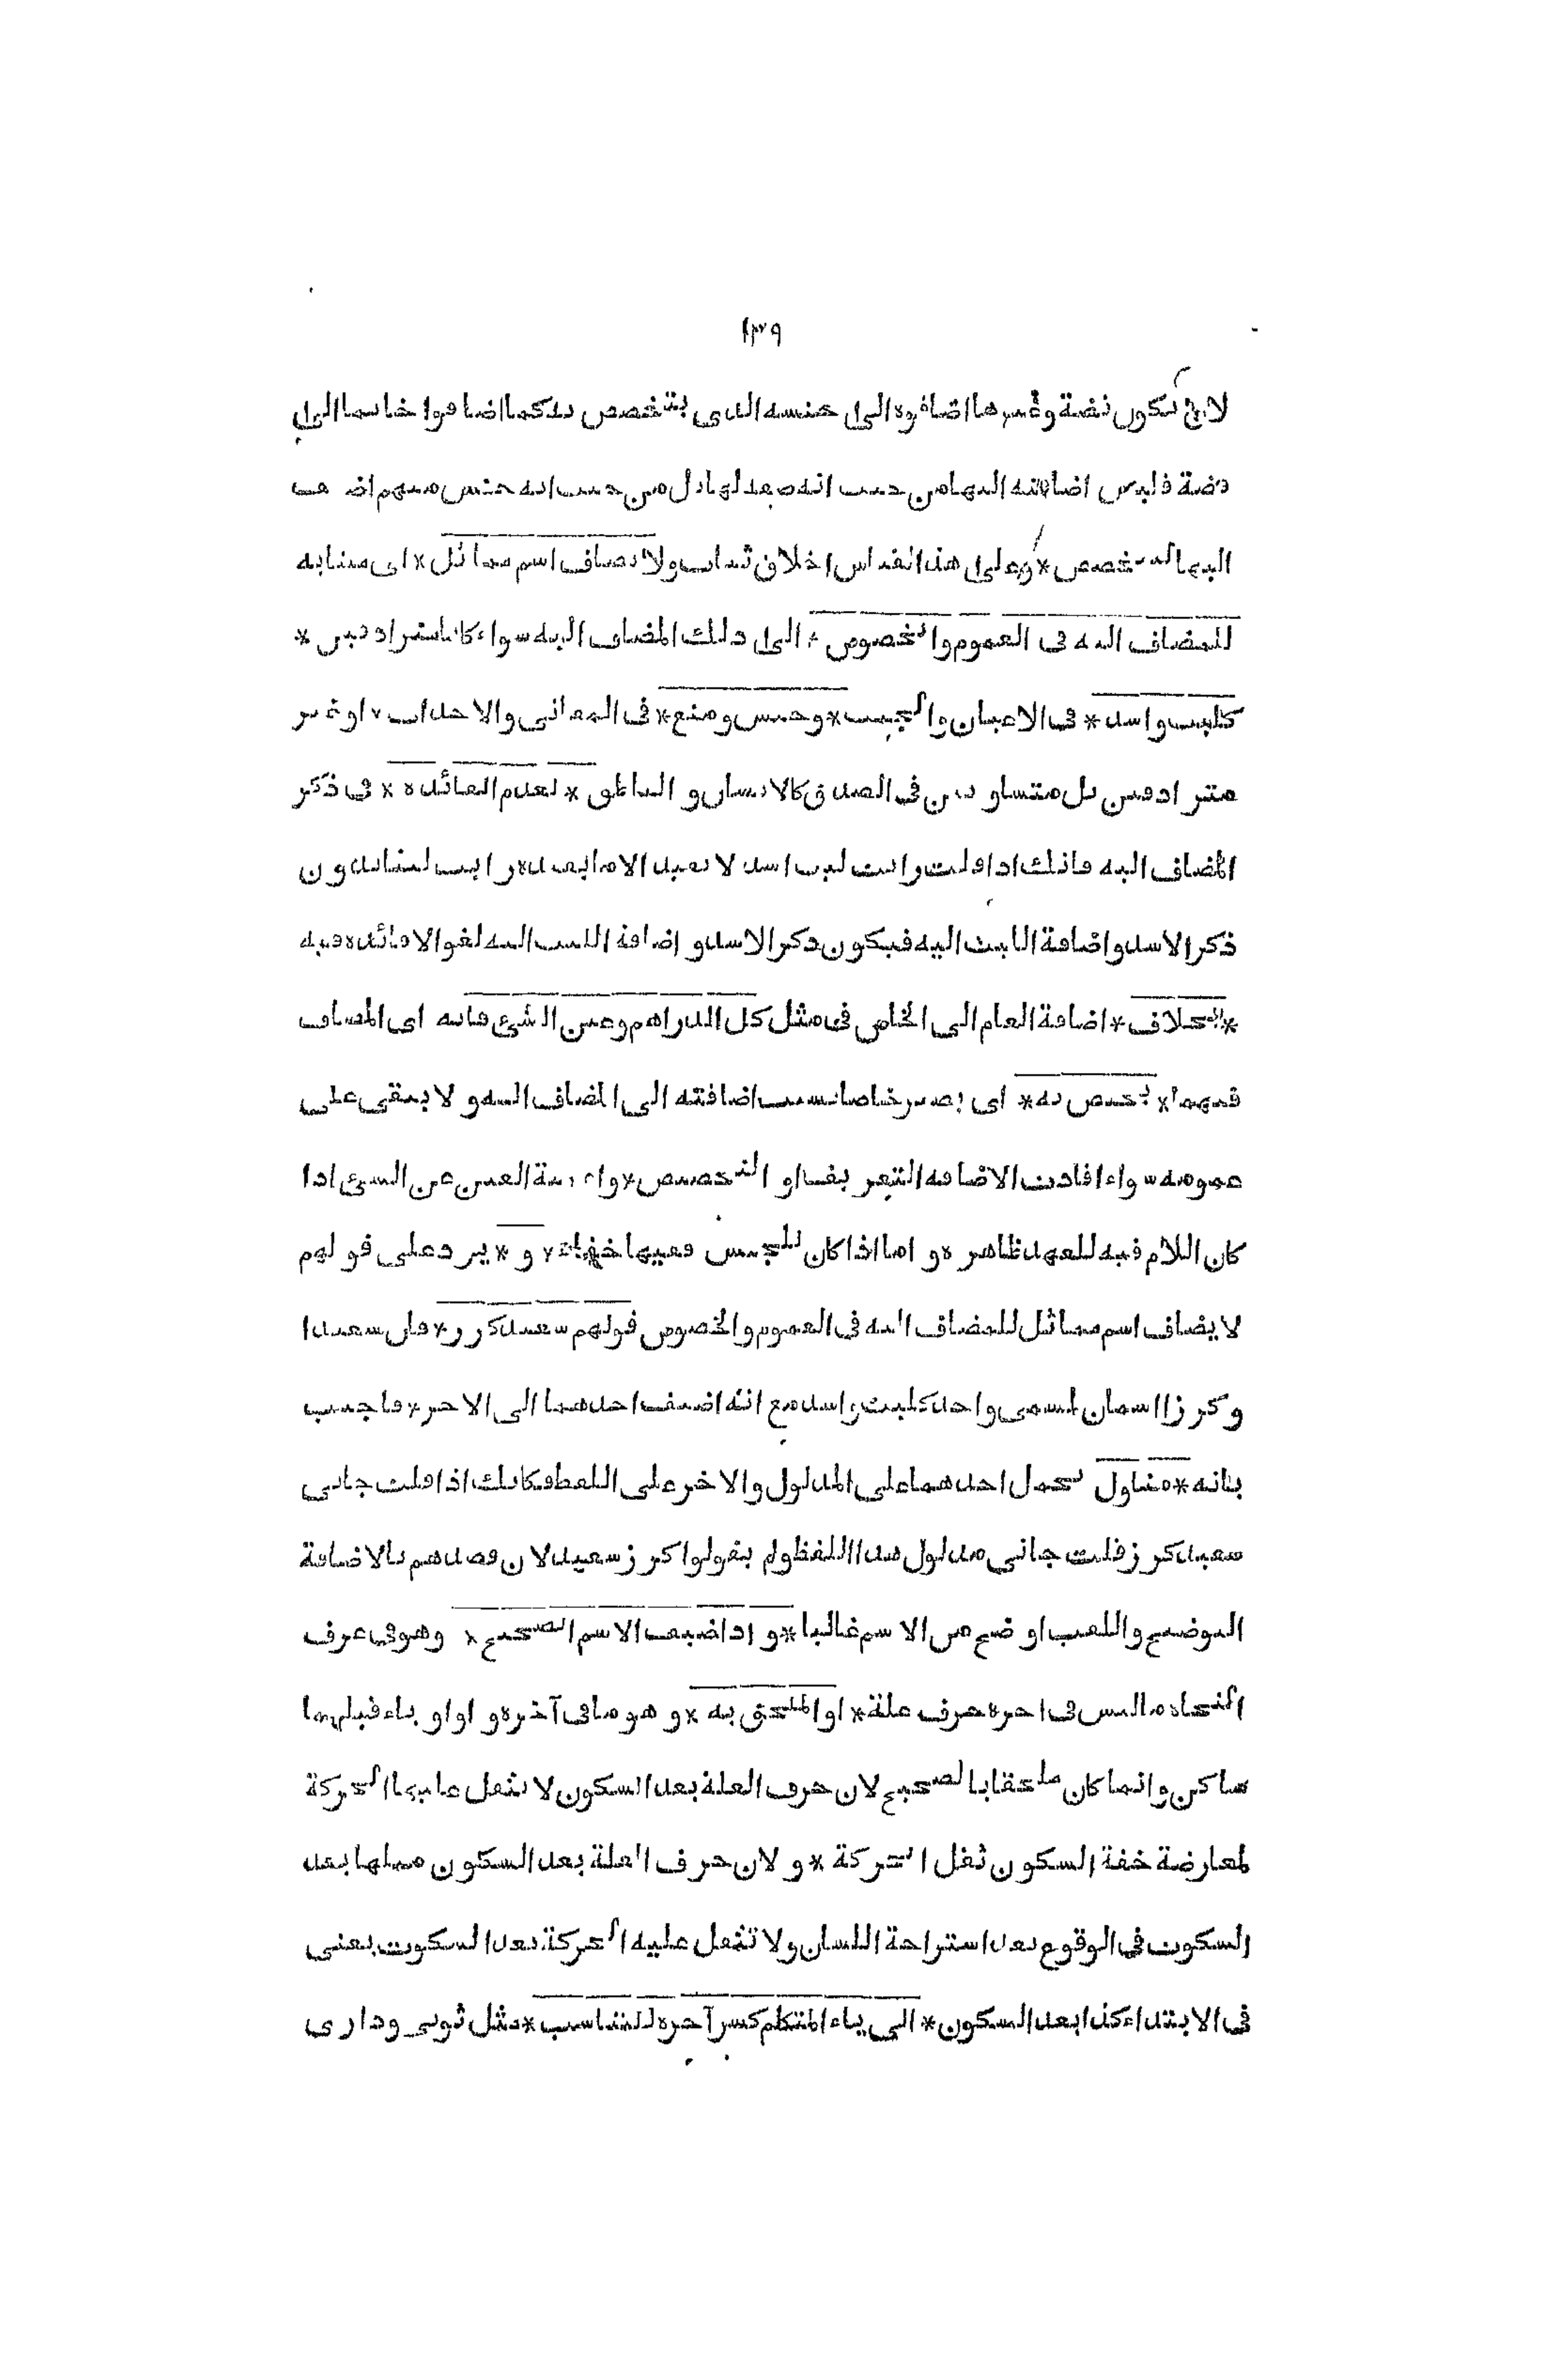 ١٣٩
لان يكون فضة وغيرها اضافوه الى جنسه الذى يتخصص به كما اضافوا خاتما الى
فضة فليس اضافته اليها من حيث انه صفة لها بل من حيث انه جنس مبهم اضيف
اليها ليتخصص * وعلى هذا القياس اخلاق ثياب ولا يضاف اسم مماثل * اى مشابه
للمضاف اليه فى العموم والخصوص * الى ذلك المضاف اليه سواء كانا مترادفين *
كليث واسد * فى الاعيان والجثث * وحبس ومنع * فى المعانى والاحداث * او غير
مترادفين بل متساويين فى الصدق كالانسان والناطق * لعدم الفائدة * فى ذكر
المضاف اليه فانك اذا قلت رايت ليث اسد لا يفيد الا ما يفيده رايت ليثا بدون
ذكر الاسد واضافة الليث اليه فيكون ذكر الاسد واضافة الليث اليه لغوا لا فائدة فيه
* بخلاف * اضافة العام الى الخاص فى مثل كل الدراهم وعين الشئ فانه اى المضاف
فيهما * يختص به * اى يصير خاصا بسبب اضافته الى المضاف اليه ولا يبقى على
عمومه سواء افادت الاضافة التعريف او التخصيص * واعمية العين عن الشئ اذا
كان اللام فيه للعهد ظاهرة و اما اذا كان للجنس ففيها خفاء * و * يرد على قولهم
لا يضاف اسم مماثل للمضاف اليه فى العموم والخصوص قولهم سعيد كرز * فان سعيدا
وكرزا اسمان لمسمى واحد كليث واسد مع انه اضيف احدهما الى الاخر * فاجيب
بانه * متاول بحمل احدهما على المدلول والاخر على اللفظ فكانك اذا قلت جانى
سعيد كرز قلت جانى مدلول هذا اللفظ ولم يقولوا كرز سعيد لان قصدهم بالاضافة
التوضيح واللقب اوضح من الاسم غالبا * و اذا اضيف الاسم الصحيح * وهو فى عرف
النحاة ما ليس فى اخره حرف علة * او الملحق به * و هو ما فى آخره واو او ياء قبلهما
ساكن وانما كان ملحقا بالصحيح لان حرف العلة بعد السكون لا تثقل عليها الحركة
لمعارضة خفة السكون ثقل الحركة * و لان حرف العلة بعد السكون مثلها بعد
السكوت فى الوقوع بعد استراحة اللسان ولا تثقل عليه الحركة بعد السكوت يعنى
فى الابتداء كذا بعد السكون * الى ياء المتكلم كسر آخره للتناسب * مثل ثوبى ودارى